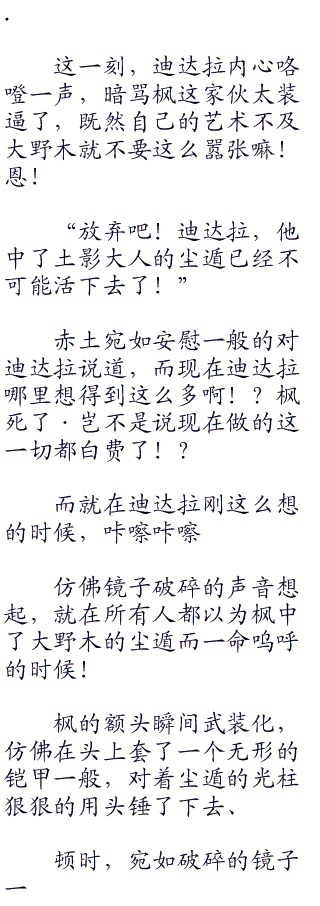 .
这一刻，迪达拉内心咯
噔一声，暗骂枫这家伙太装
逼了，既然自己的艺术不及
大野木就不要这么嚣张嘛！
恩！
“放弃吧！迪达拉，他
中了土影大人的尘遁已经不
可能活下去了！”
赤土宛如安慰一般的对
迪达拉说道，而现在迪达拉
哪里想得到这么多啊！？枫
死了·岂不是说现在做的这
一切都白费了！？
而就在迪达拉刚这么想
的时候，咔嚓咔嚓
仿佛镜子破碎的声音想
起，就在所有人都以为枫中
了大野木的尘遁而一命呜呼
的时候！
枫的额头瞬间武装化，
仿佛在头上套了一个无形的
铠甲一般，对着尘遁的光柱
狠狠的用头锤了下去、
顿时，宛如破碎的镜子
一